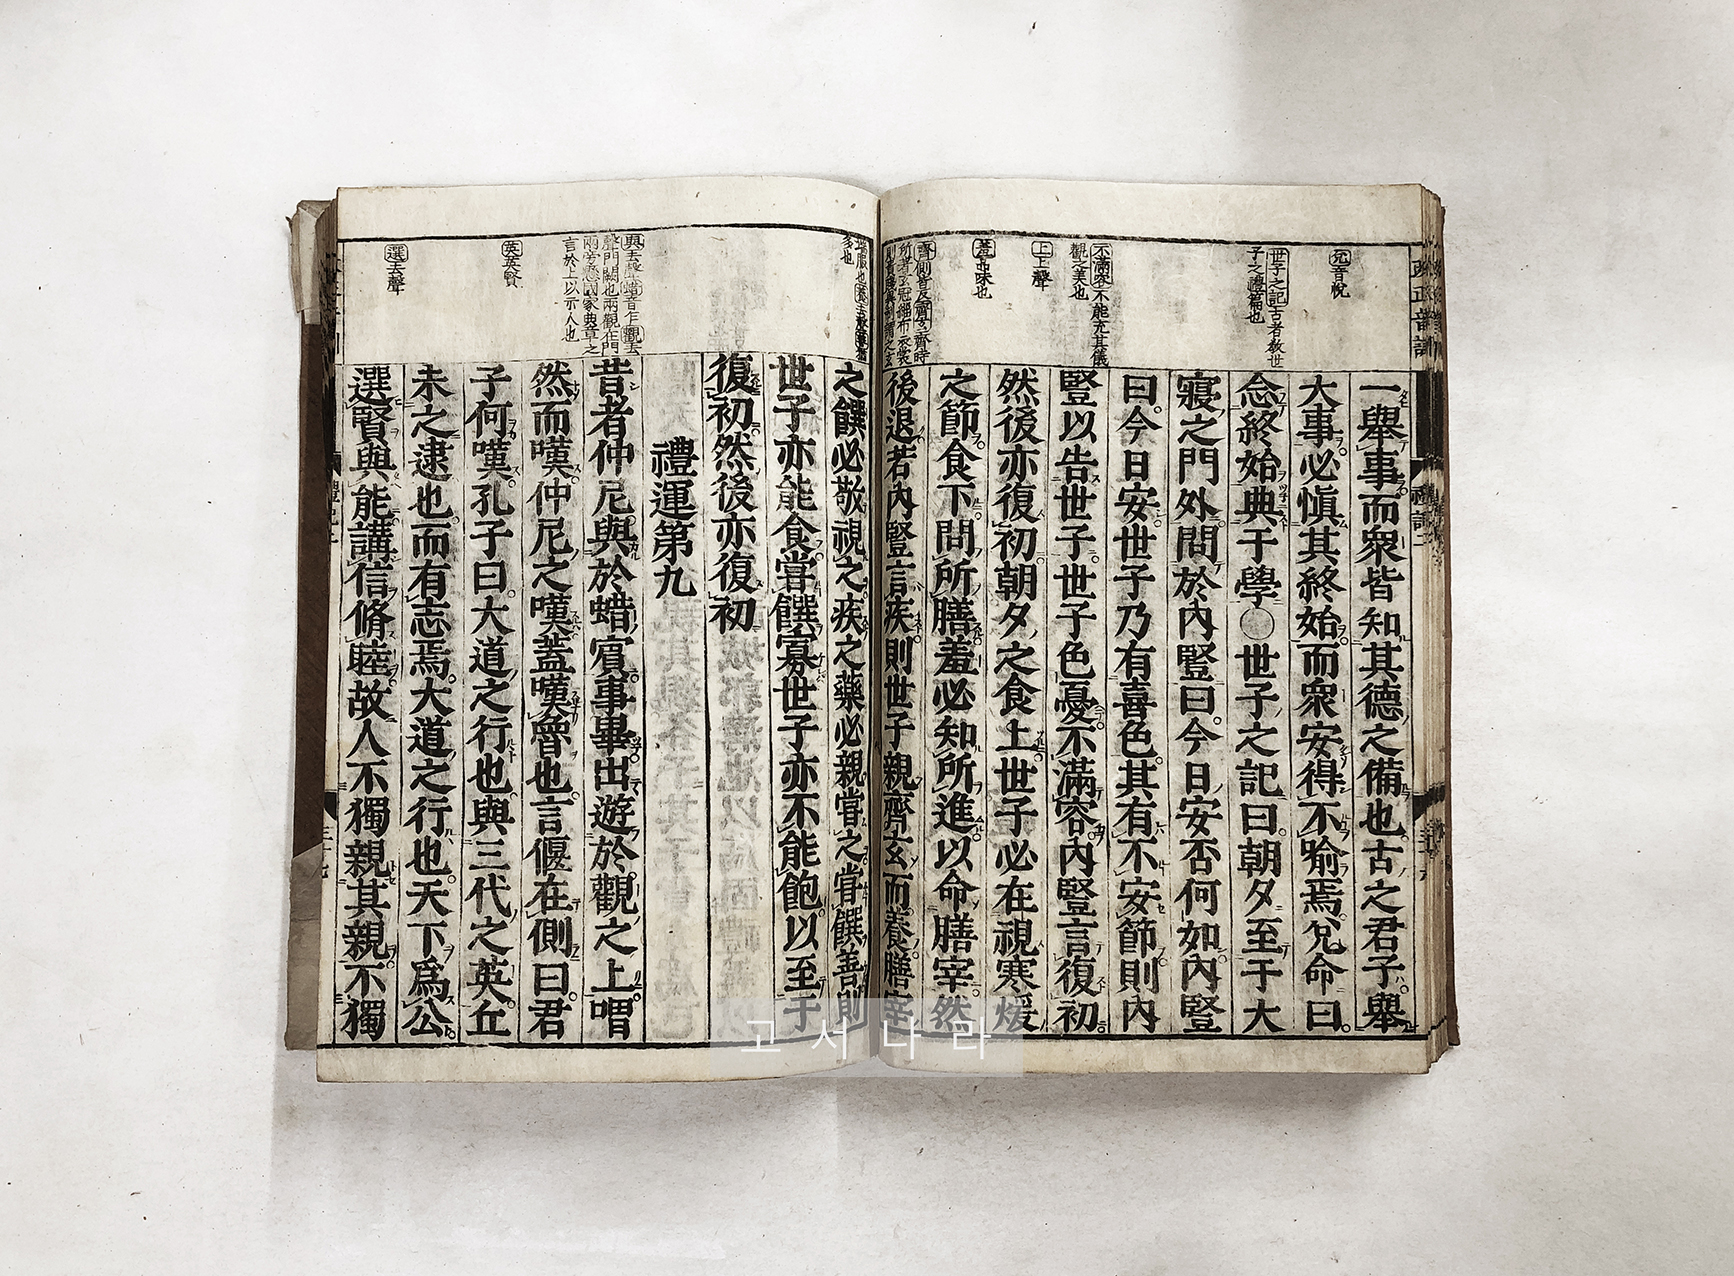 兌音悅
世子之記古者教世
子之禮篇也
不滿容不能充其儀
觀之美也
上上聲
羞
味也
一舉事而衆皆知其德之備也古之君子舉
大事必愼其終始而衆安得不喻焉兌命曰
念終始典于學○世子之記曰朝夕至于大
寢之門外問於內豎曰今日安否何如內豎
曰今日安世子乃有喜色其有不安節則內
豎以告世子世子色憂不滿容內豎言復初
然後亦復初朝夕之食上世子必在視寒煖
之節食下問所膳羞必知所進以命膳宰然
後退若內豎言疾則世子親齊玄而養膳宰
多也
與去聲蜡音乍觀去
聲門闕也兩觀在門
兩旁懸國家典章之
言於上以示人也
英英賢
選去聲
之饌必敬視之疾之藥必親嘗之嘗饌善則
世子亦能食嘗饌寡世子亦不能飽以至于
復初然後亦復初
禮運第九
昔者仲尼與於蜡賓事畢出遊於觀之上喟
然而嘆仲尼之嘆蓋嘆魯也言偃在側曰君
子何嘆孔子曰大道之行也與三代之英丘
未之逮也而有志焉大道之行也天下爲公
選賢與能講信脩睦故人不獨親其親不獨
고서나라